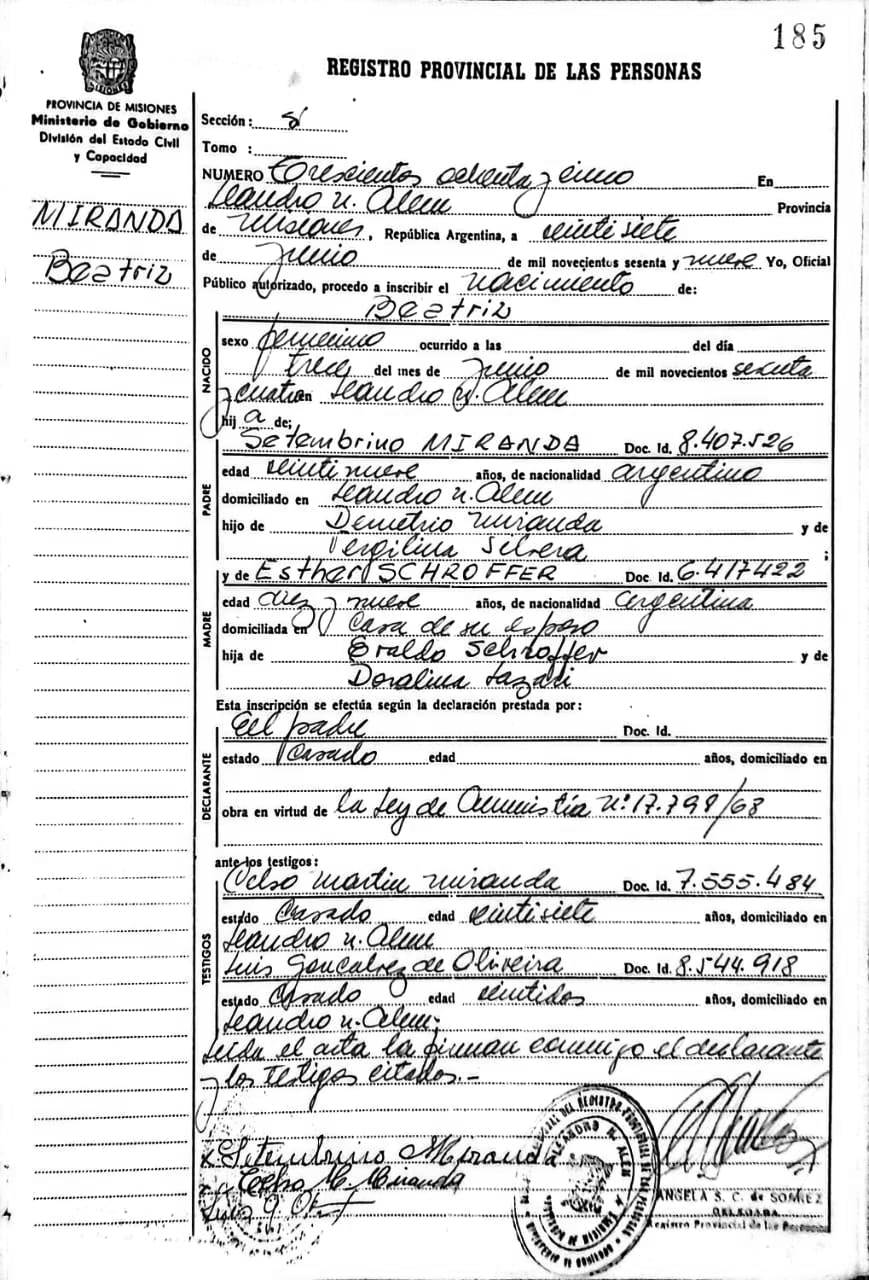 185
REGISTRO PROVINCIAL DE LAS PERSONAS
PROVINCIA DE MISIONES
Ministerio de Gobierno
División del Estado Civil
y Capacidad
MIRANDA
Beatriz
Sección:
Tomo :
NUMERO Trescientos ochenta y cinco En
Leandro N. Alem Provincia
de Misiones, República Argentina, a veintisiete
de junio de mil novecientos sesenta y nueve Yo, Oficial
Público autorizado, procedo a inscribir el nacimiento de:
Beatriz
NACIDO
sexo femenino ocurrido a las del día
trece del mes de junio de mil novecientos sesenta
y cuatro en Leandro N. Alem
hij a de;
Setembrino MIRANDA Doc. Id. 8.407.526
PADRE
edad veintinueve años, de nacionalidad argentino
domiciliado en Leandro N. Alem
hijo de Demetrio Miranda y de
Vergilina Silvera ;
y de Esther SCHROFFER Doc. Id. 6.417422
MADRE
edad diez y nueve años, de nacionalidad argentina
domiciliada en Casa de su esposo
hija de Eraldo Schroffer y de
Doralina
Esta inscripción se efectúa según la declaración prestada por:
El padre Doc. Id.
DECLARANTE
estado Casado edad años, domiciliado en
obra en virtud de la Ley de Amnistía Nº 17.798/68
ante los testigos:
Celso Martin Miranda Doc. Id. 7.555.484
TESTIGOS
estado Casado edad veintisiete años, domiciliado en
Leandro N. Alem
Luis Goncalvez de Oliveira Doc. Id. 8.544.918
estado Casado edad veintidos años, domiciliado en
Leandro N. Alem.
Leída el acta la firman conmigo el declarante
y los testigos citados.-
x Setembrino Miranda
Miranda
Luis
LEANDRO N. ALEM
ANGELA S. C. de
DELEGADA
Registro Provincial de las Personas